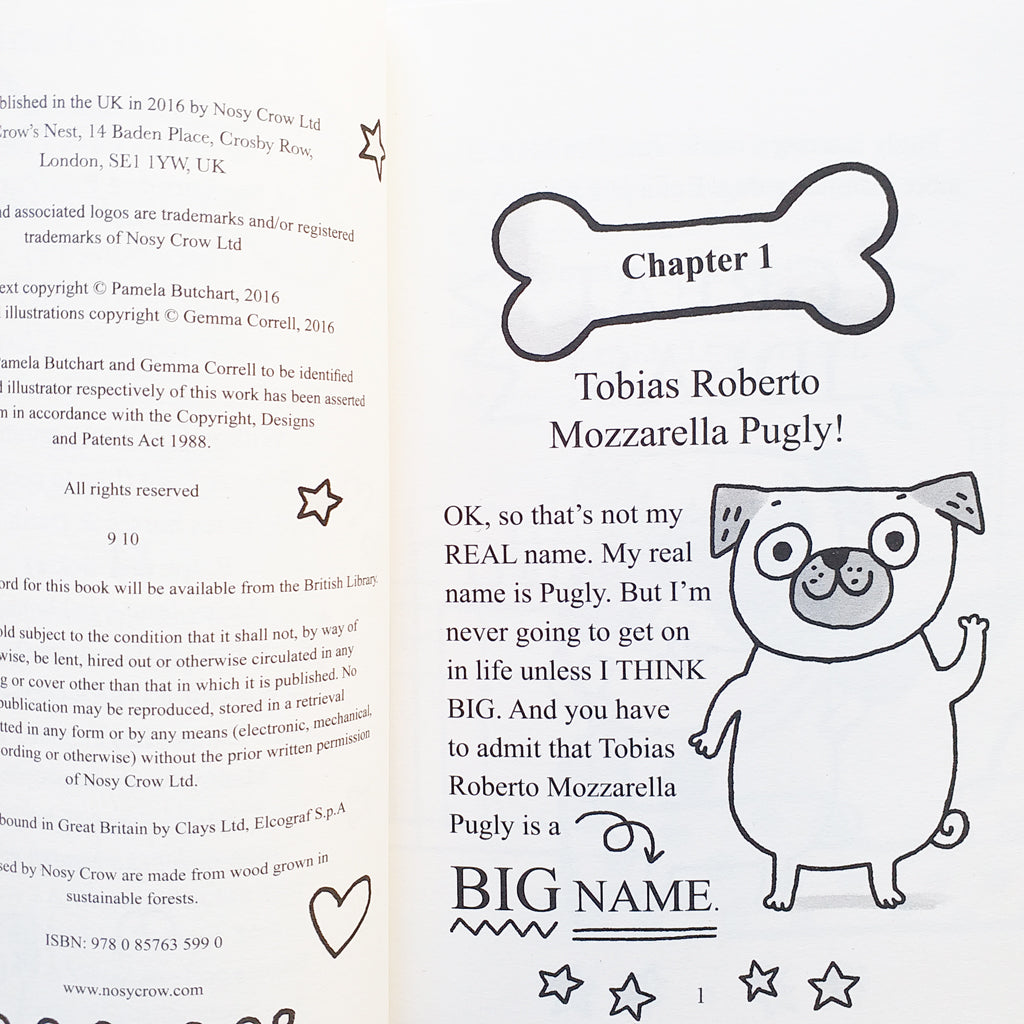 in the UK in 2016 by Nosy Crow Ltd
Nest, 14 Baden Place, Crosby Row,
London, SE1 1YW, UK
associated logos are trademarks and/or registered
trademarks of Nosy Crow Ltd
copyright © Pamela Butchart, 2016
illustrations copyright © Gemma Correll, 2016
Butchart and Gemma Correll to be identified
illustrator respectively of this work has been asserted
in accordance with the Copyright, Designs
and Patents Act 1988.
All rights reserved
9 10
for this book will be available from the British Library.
subject to the condition that it shall not, by way of
be lent, hired out or otherwise circulated in any
or cover other than that in which it is published. No
publication may be reproduced, stored in a retrieval
in any form or by any means (electronic, mechanical,
or otherwise) without the prior written permission
of Nosy Crow Ltd.
bound in Great Britain by Clays Ltd, Elcograf S.p.A
by Nosy Crow are made from wood grown in
sustainable forests.
ISBN: 978 0 85763 599 0
www.nosycrow.com
Chapter 1
Tobias Roberto
Mozzarella Pugly!
OK, so that's not my
REAL name. My real
name is Pugly. But I'm
never going to get on
in life unless I THINK
BIG. And you have
to admit that Tobias
Roberto Mozzarella
Pugly is a
BIG NAME.
1